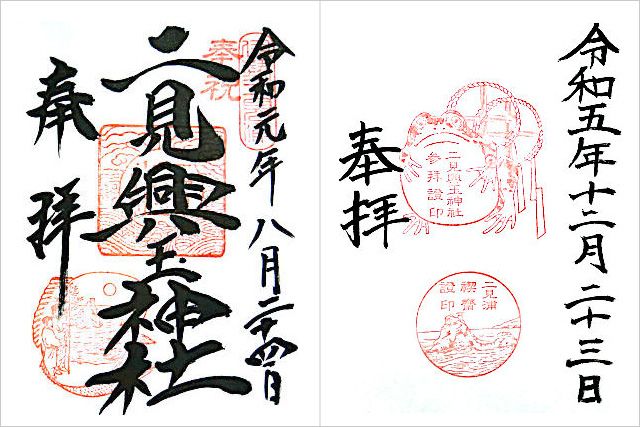 奉拝
二見興玉神社
奉祝
令和元年八月二十四日
令和五年十二月二十三日
奉拝
二見興玉神社
参拝證印
二見浦
禊齋
證印